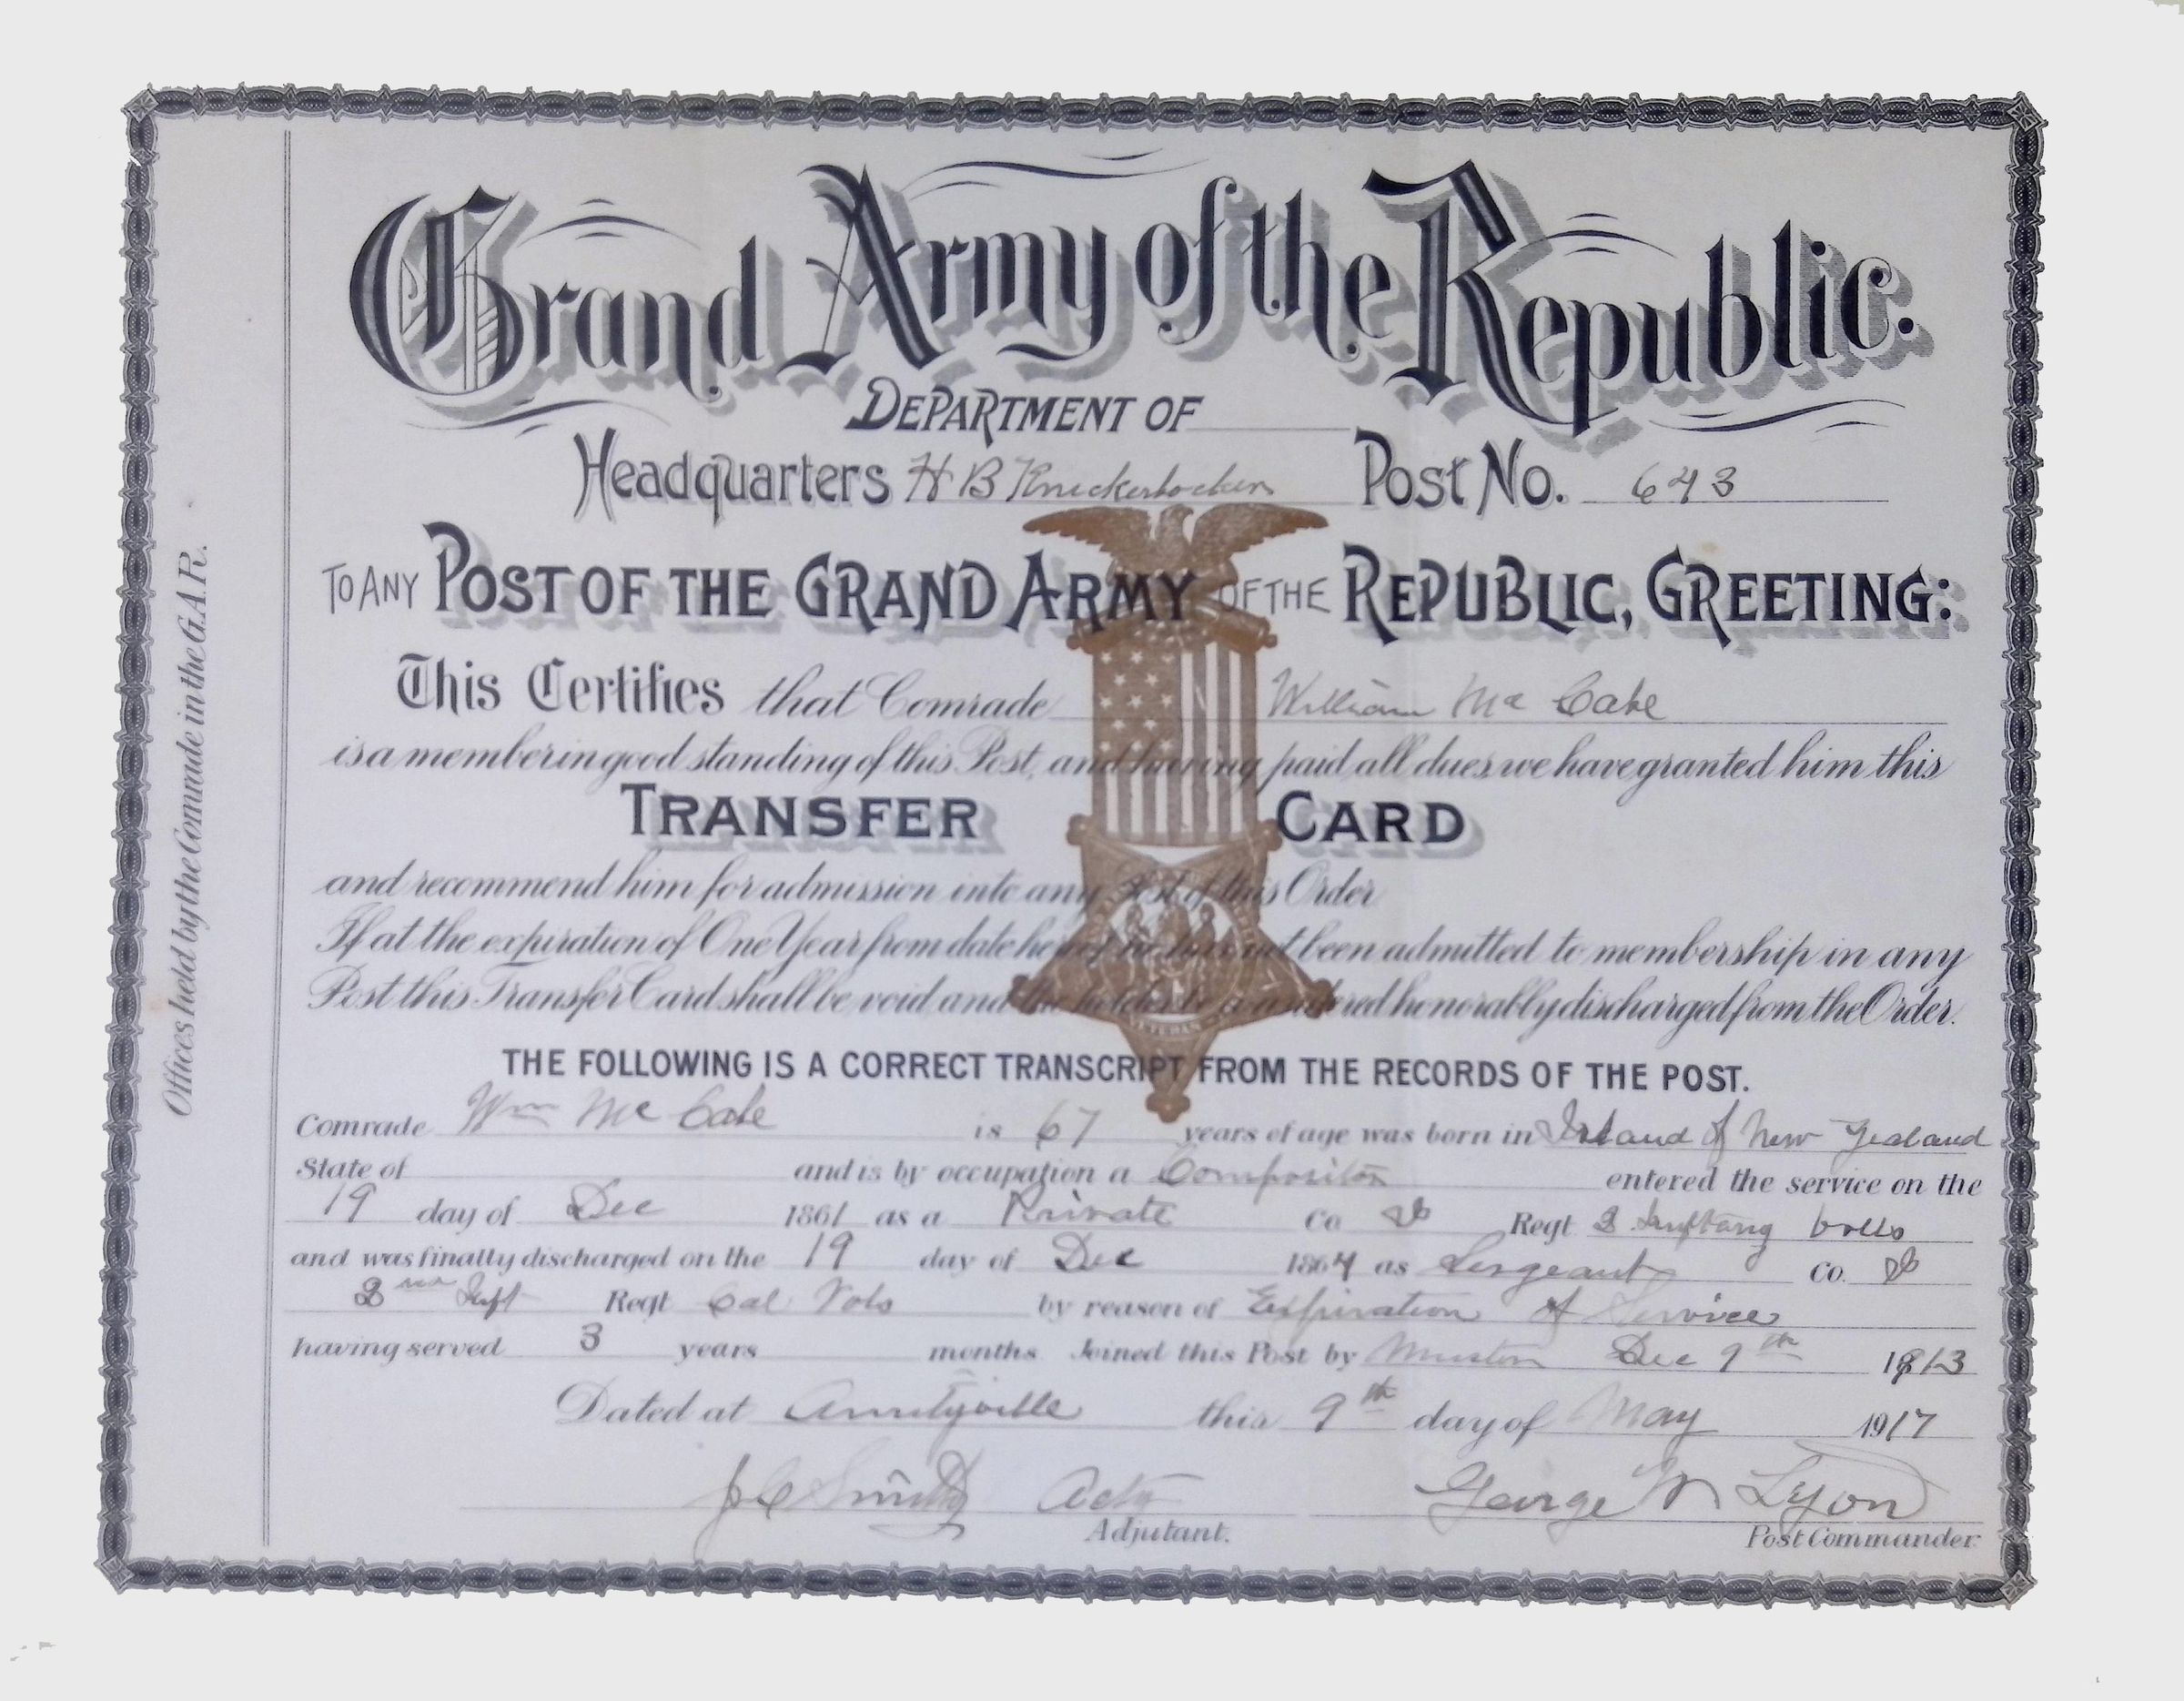 Grand Army of the Republic.
DEPARTMENT OF
Headquarters H B Knickerbocker Post No. 643
TO ANY POST OF THE GRAND ARMY OF THE REPUBLIC, GREETING:
This Certifies that Comrade William Mc Cabe
is a member in good standing of this Post, and having paid all dues we have granted him this
TRANSFER CARD
and recommend him for admission into any Post of this Order
If at the expiration of One Year from date hereof he has not been admitted to membership in any
Post this Transfer Card shall be void and the holder be considered honorably discharged from the Order.
THE FOLLOWING IS A CORRECT TRANSCRIPT FROM THE RECORDS OF THE POST.
Comrade Wm Mc Cabe is 67 years of age was born in Island of New Zealand
State of and is by occupation a Compositor entered the service on the
19 day of Dec 1861 as a Private Co Regt 2
and was finally discharged on the 19 day of Dec 1864 as Sergeant Co.
2nd Regt Cal Vols by reason of Expiration of Service
having served 3 years months Joined this Post by Muster Dec 9th 1913
Dated at Amityville this 9th day of May 1917
J C Smith Adjutant.
George W Lyon Post Commander
Offices held by the Comrade in the G.A.R.